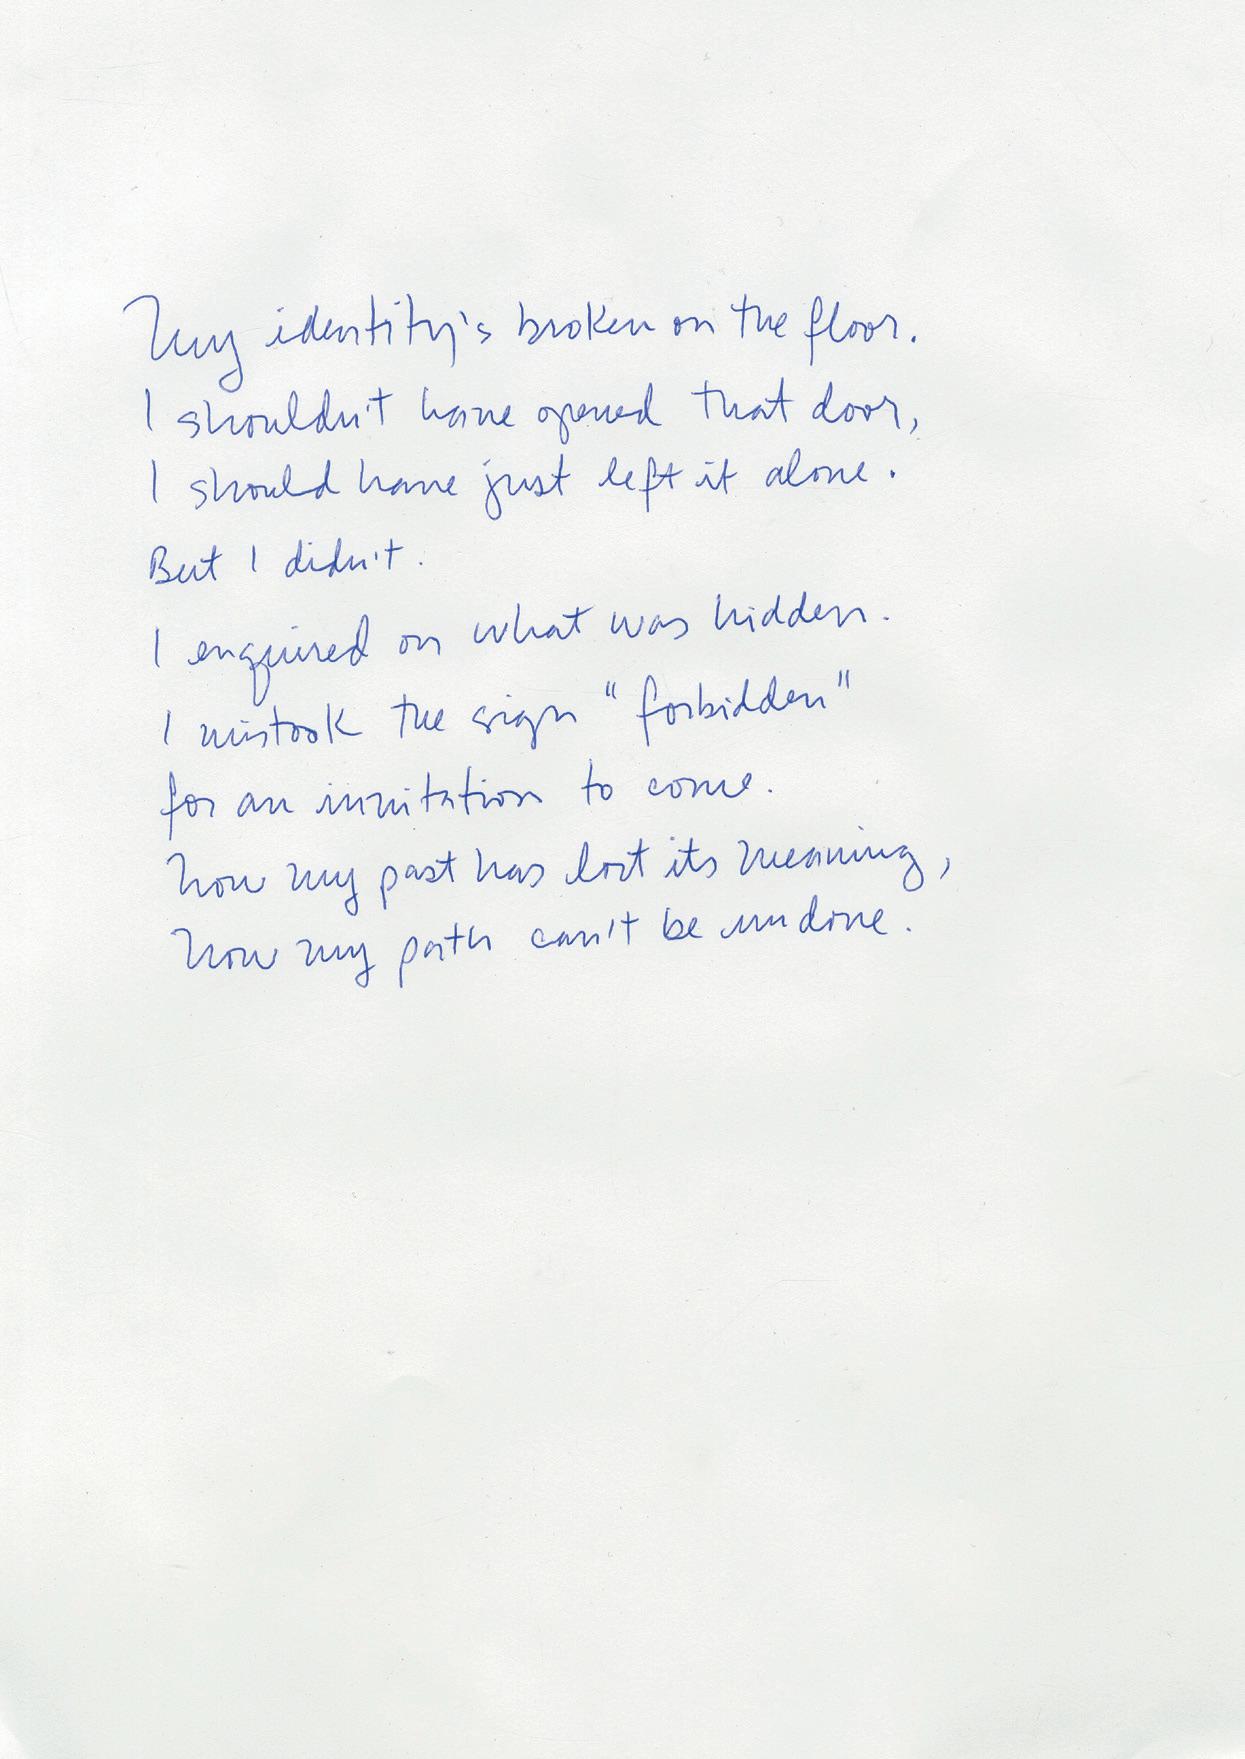 My identity's broken on the floor.
I shouldn't have opened that door,
I should have just left it alone.
But I didn't.
I enquired on what was hidden.
I mistook the sign "forbidden"
for an invitation to come.
Now my past has lost its meaning,
Now my path can't be undone.